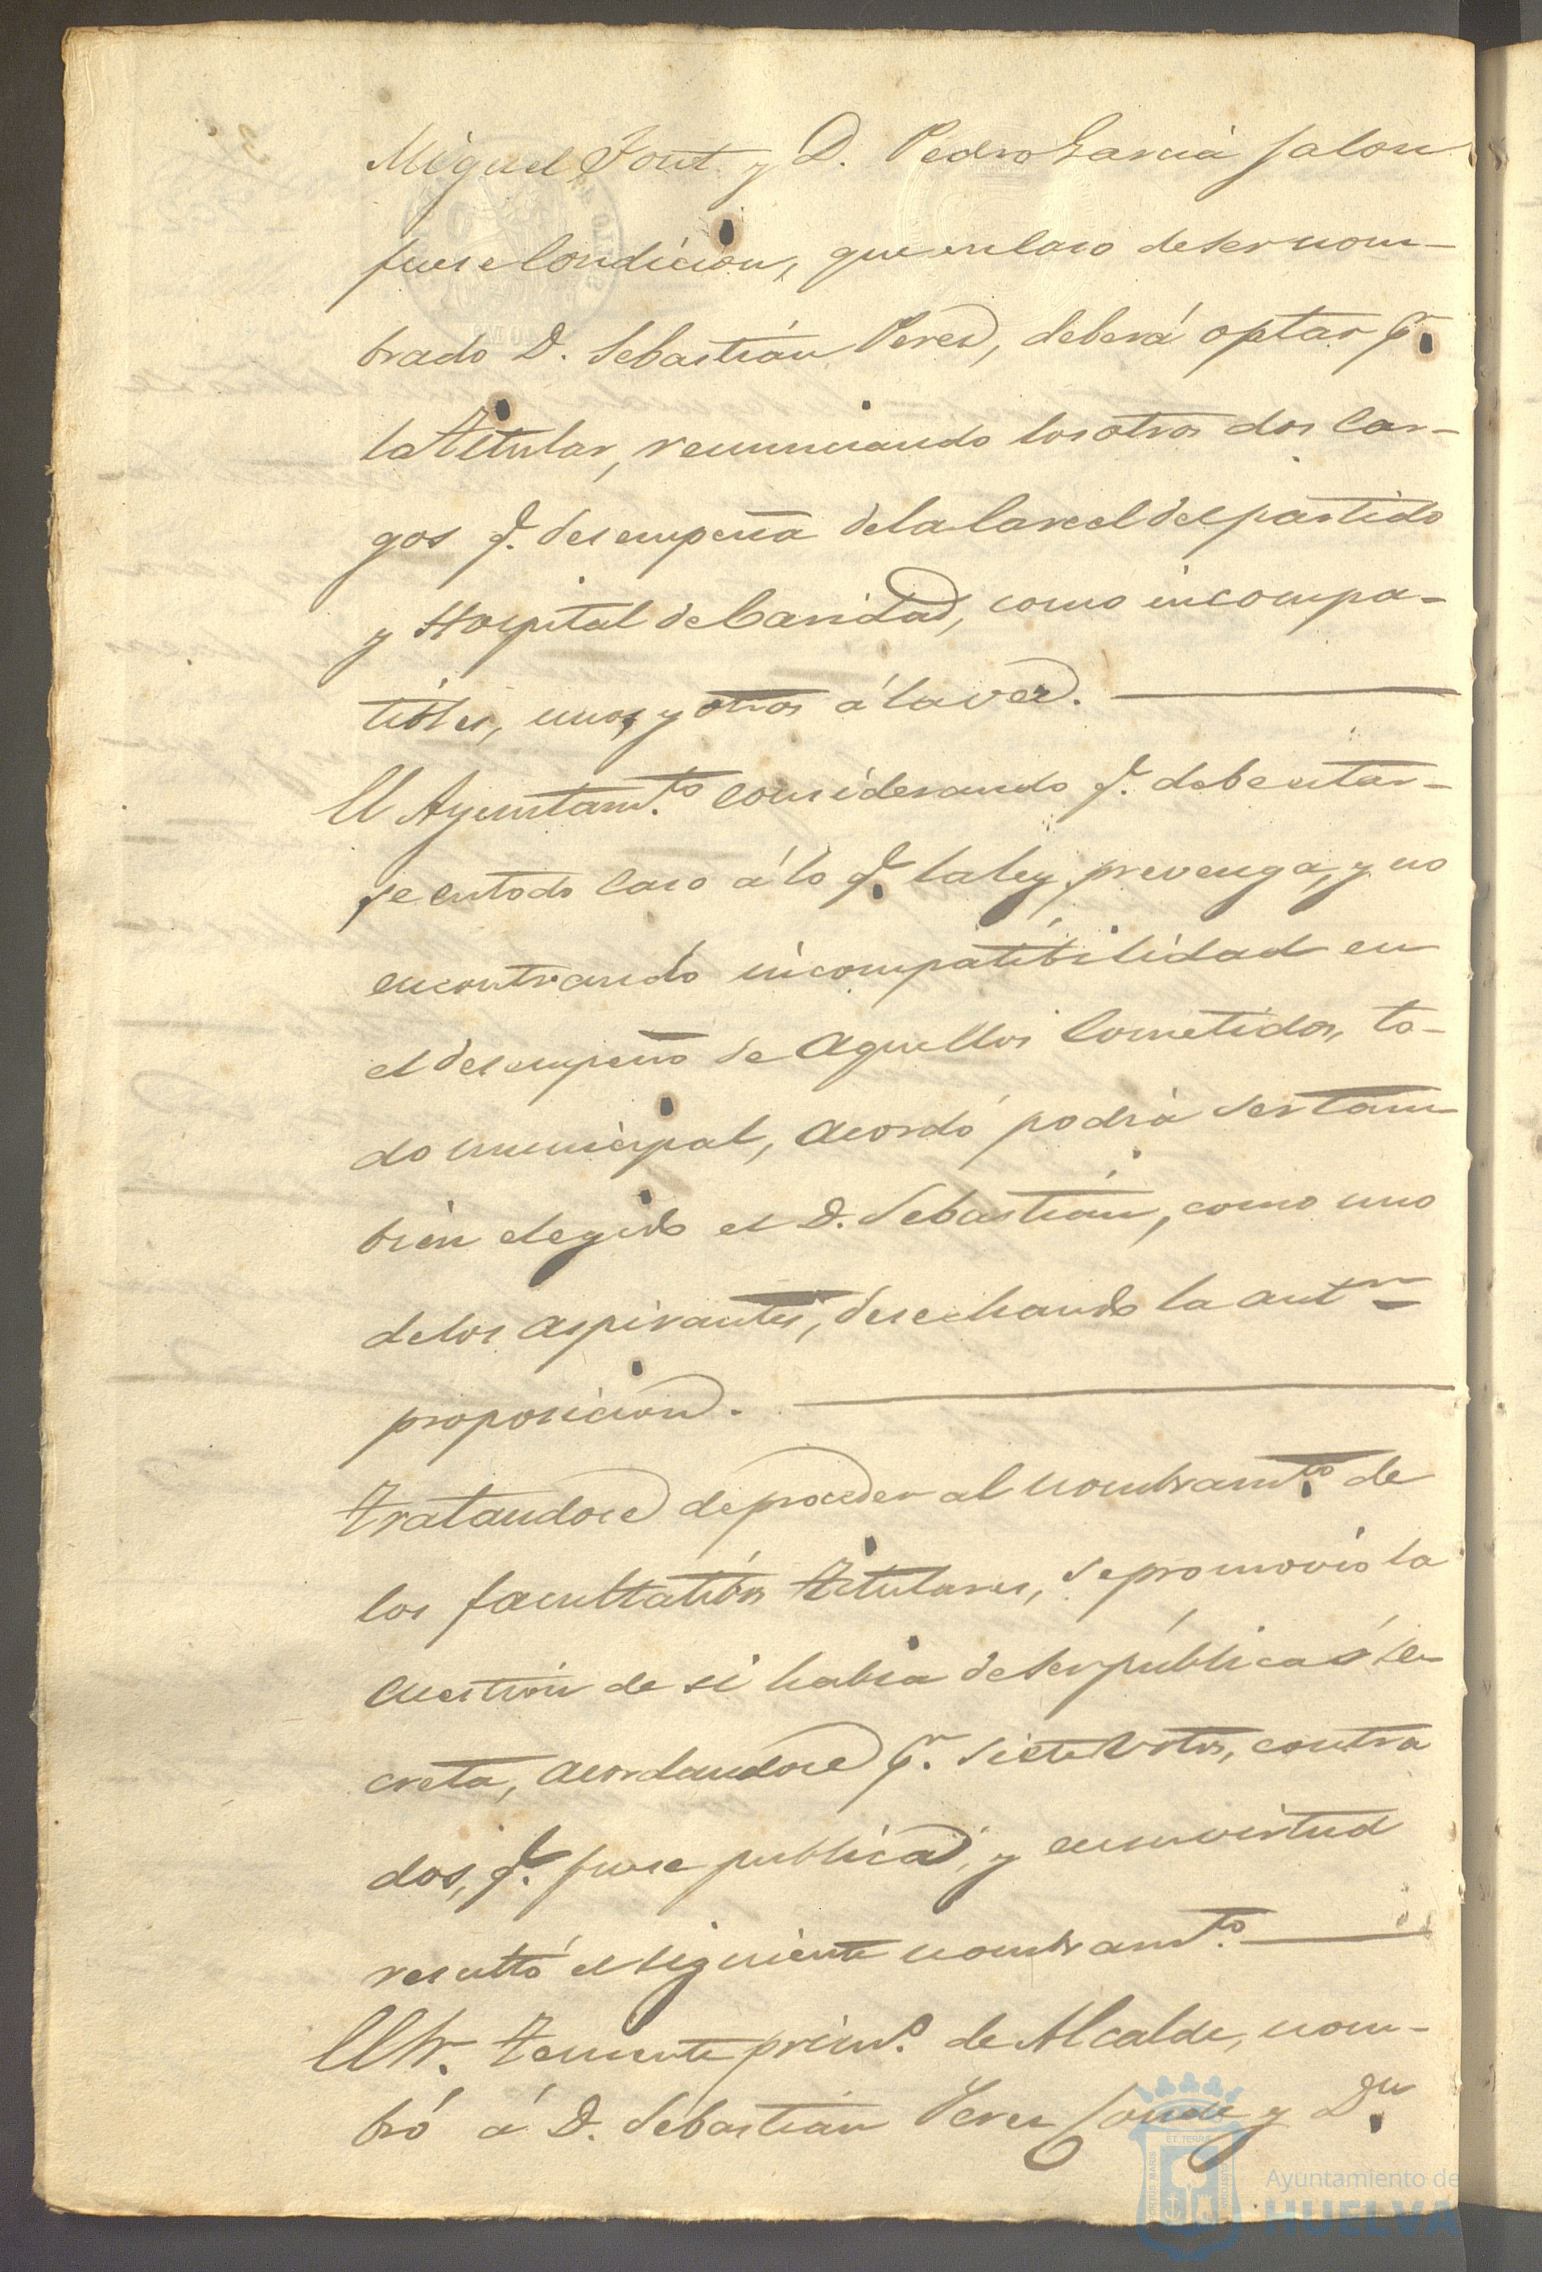 Miguel Font y D. Pedro Garcia Jalon
fuese Condicion, que en Caso de ser nom-
brado D. Sebastián Perez, deberá optar pr.
la Titular, renunciando los otros dos Car-
gos q. desempeña de la Carcel del partido
y Hospital de Caridad, como incompa-
tibles, unos y otros á la vez.
El Ayuntamto. Considerando q. debe estar-
se en todo Caso á lo q. la ley prevenga, y no
encontrando incompatibilidad en
el desempeño de Aquellos Cometidos, to-
do municipal, Acordó podria ser tam-
bien elegido el D. Sebastián, como uno
de los Aspirantes, desechando la antr
proposicion.
Tratandose de proceder al nombramto. de
los facultativos Titulares, se promovió la
Cuestion de si habia de ser pública ó se-
creta, Acordandose pr. siete Votos, contra
dos, q. fuese publica; y en su virtud
resultó el siguiente nombramto.
El Sr. Teniente primo. de Alcalde, nom-
bró á D. Sebastián Perez Conde y Dn
Ayuntamiento de
HUELVA